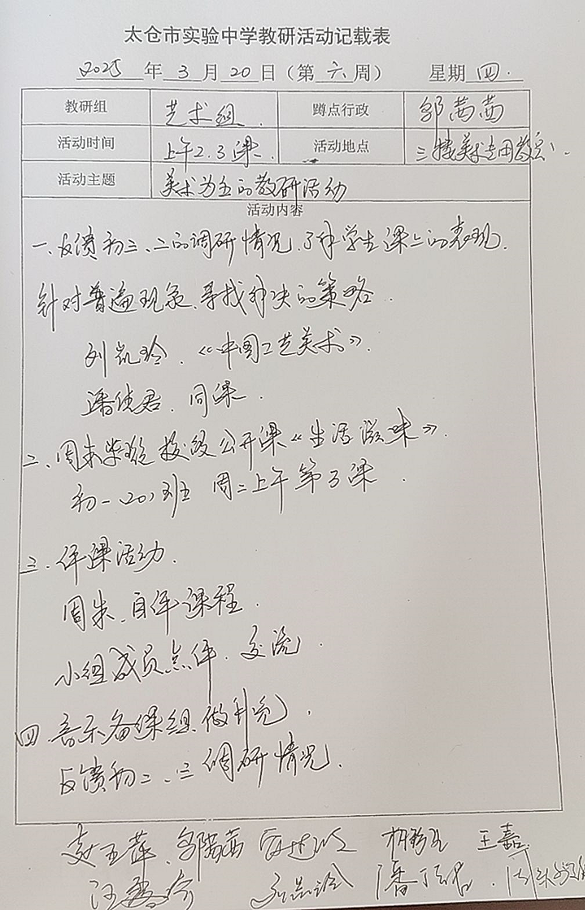 太仓市实验中学教研活动记载表
2025 年 3 月 20 日（第 六 周） 星期 四.
教研组 艺术组. 蹲点行政 邹茜茜
活动时间 上午2.3课. 活动地点 三楼美术专用教室
活动主题 美术为主的教研活动
活动内容
一、反馈初三、二的调研情况,了解学生课上的表现.
针对普遍现象,寻找解决的策略.
刘凯玲.《中国工艺美术》.
潘俊君. 同课.
二、周末 校级公开课《生活滋味》.
初一.(20)班 周二上午第3课.
三.评课活动.
周朱.自评课程.
小组成员点评.交流.
四 音乐备课组.做补充.
反馈初二、三调研情况.
王嘉